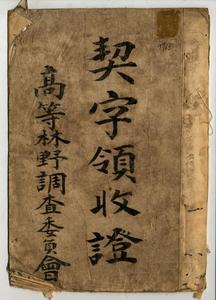 契字領收證
高等林野調查委員會